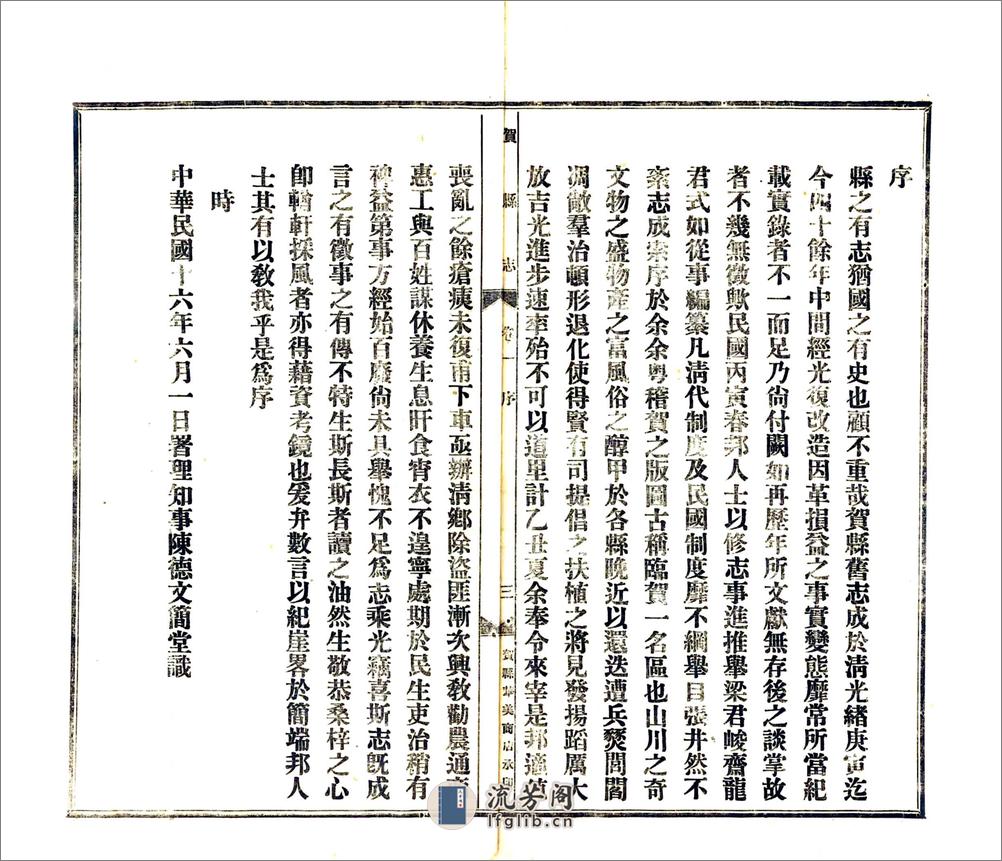 序
縣之有志猶國之有史也顧不重哉賀縣舊志成於清光緒庚寅迄
今四十餘年中間經光復改造因革損益之事實變態靡常所當紀
載實錄者不一而足乃尙付闕如再歷年所文獻無存後之談掌故
者不幾無徵歟民國丙寅春邦人士以修志事進推舉梁君崚齋龍
君式如從事編纂凡清代制度及民國制度靡不綱舉目張井然不
紊志成索序於余余粤稽賀之版圖古稱臨賀一名區也山川之奇
文物之盛物產之富風俗之醇甲於各縣晚近以還迭遭兵燹閭閻
凋敝羣治頓形退化使得賢有司提倡之扶植之將見發揚蹈厲大
放吉光進步速率殆不可以道里計乙丑夏余奉令來宰是邦適值
賀縣志
卷一
序
三
賀縣美商店承印
喪亂之餘瘡痍未復甫下車亟辦清鄉除盜匪漸次興敎勸農通商
惠工與百姓謀休養生息旰食宵衣不遑寧處期於民生吏治稍有
稗益第事方經始百廢尙未具舉愧不足爲志乘光竊喜斯志旣成
言之有徵事之有傳不特生斯長斯者讀之油然生敬恭桑梓之心
卽輶軒採風者亦得藉資考鏡也爰弁數言以紀崖畧於簡端邦人
士其有以敎我乎是爲序
時
中華民國十六年六月一日署理知事陳德文簡堂識
流芳閣
lfglib.cn